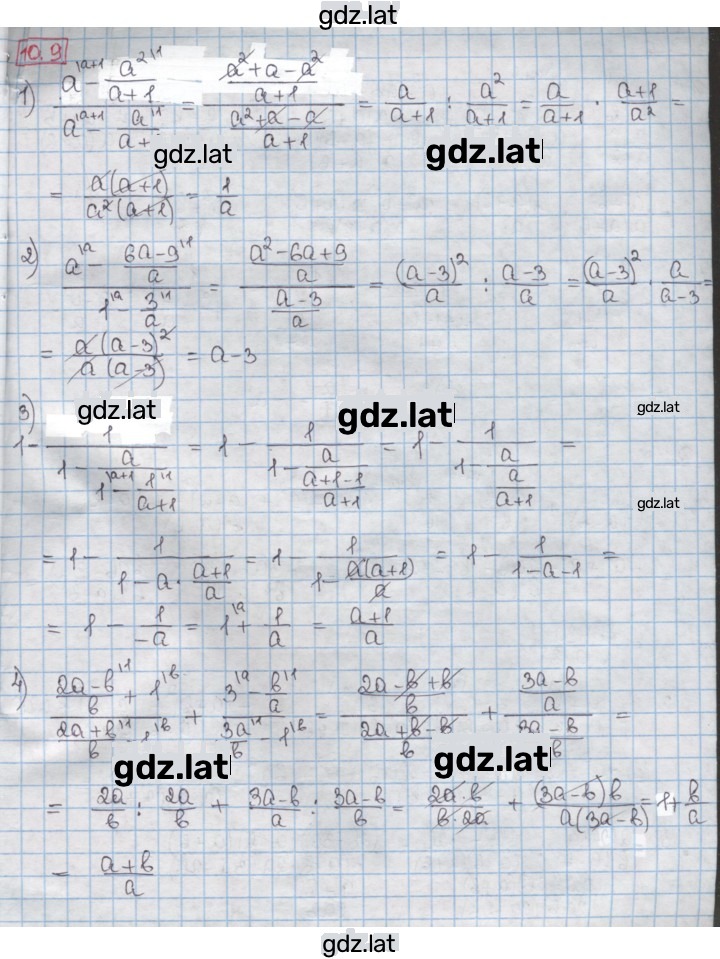 gdz.lat
10.9
1) (a^{\a+1} - a^2^{\1}/(a+1)) / (a^{\a+1} - a^{\1}/(a+)) = ((a^2+a-a^2)/(a+1)) / ((a^2+a-a)/(a+1)) = a/(a+1) : a^2/(a+1) = a/(a+1) · (a+1)/a^2 =
gdz.lat gdz.lat
= a(a+1)/(a^2(a+1)) = 1/a
2) (a^{\a} - (6a-9)^{\1}/a) / (1^{\a} - 3^{\1}/a) = ((a^2-6a+9)/a) / ((a-3)/a) = (a-3)^2/a : (a-3)/a = (a-3)^2/a · a/(a-3) =
= a(a-3)^2/(a(a-3)) = a-3
gdz.lat gdz.lat gdz.lat
3) 1 - 1/(1 - a/(1^{\a+1} - 1^{\1}/(a+1))) = 1 - 1/(1 - a/((a+1-1)/(a+1))) = 1 - 1/(1 - a/(a/(a+1))) =
gdz.lat
= 1 - 1/(1 - a · (a+1)/a) = 1 - 1/(1 - a(a+1)/a) = 1 - 1/(1-a-1) =
= 1 - 1/(-a) = 1^{\a} + 1/a = (a+1)/a
4) ((2a-b)^{\1}/b + 1^{\b}) / ((2a+b)^{\1}/b - 1^{\b}) + (3^{\a} - b^{\1}/a) / (3a^{\1}/b - 1^{\b}) = ((2a-b+b)/b) / ((2a+b-b)/b) + ((3a-b)/a) / ((3a-b)/b) =
gdz.lat gdz.lat
= 2a/b : 2a/b + (3a-b)/a : (3a-b)/b = 2a·b/(b·2a) + (3a-b)b/(a(3a-b)) = 1 + b/a
= (a+b)/a
gdz.lat